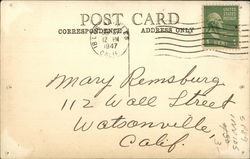 POST CARD
CORRESPONDENCE ADDRESS ONLY
12 PM
1947
CALIF.
1 CENT
Mary Remsburg
112 Wall Street
Watsonville,
Calif.